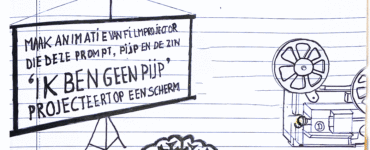 MAAK ANIMATIE VAN FILMPROJECTOR
DIE DEZE PROMPT, PIJP EN DE ZIN
'IK BEN GEEN PIJP'
PROJECTEERT OP EEN SCHERM